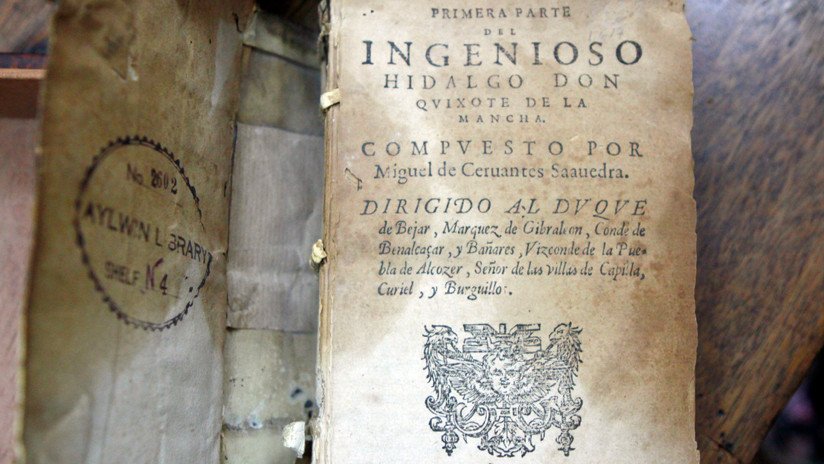 No. 2602
AYLWIN LIBRARY
SHELF N 4
PRIMERA PARTE
DEL
INGENIOSO
HIDALGO DON
QVIXOTE DE LA
MANCHA.
COMPVESTO POR
Miguel de Ceruantes Saauedra.
DIRIGIDO AL DVQVE
de Bejar, Marquez de Gibraleon, Conde de
Benalcaçar, y Bañares, Vizconde de la Pue-
bla de Alcozer, Señor de las villas de Capilla,
Curiel, y Burguillos.